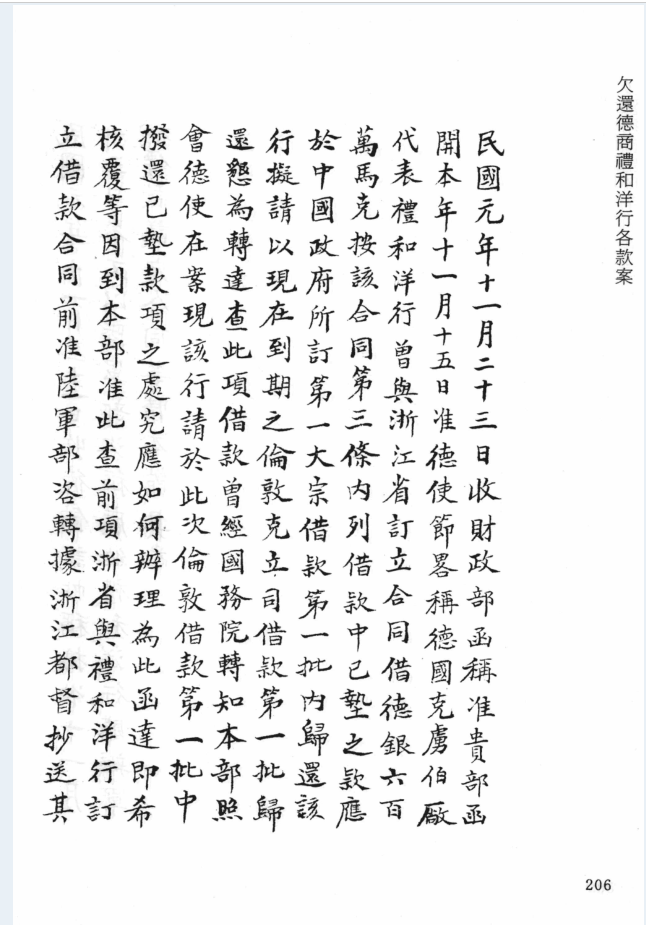 欠還德商禮和洋行各款案
民國元年十一月二十三日收財政部函稱准貴部函
開本年十一月十五日准德使節畧稱德國克虜伯廠
代表禮和洋行曾與浙江省訂立合同借德銀六百
萬馬克按該合同第三條内列借款中已墊之款應
於中國政府所訂第一大宗借款第一批内歸還該
行擬請以現在到期之倫敦克立司借款第一批歸
還懇為轉達查此項借款曾經國務院轉知本部照
會德使在案現該行請於此次倫敦借款第一批中
撥還已墊款項之處究應如何辦理為此函達即希
核覆等因到本部准此查前項浙省與禮和洋行訂
立借款合同前准陸軍部咨轉據浙江都督抄送其
206